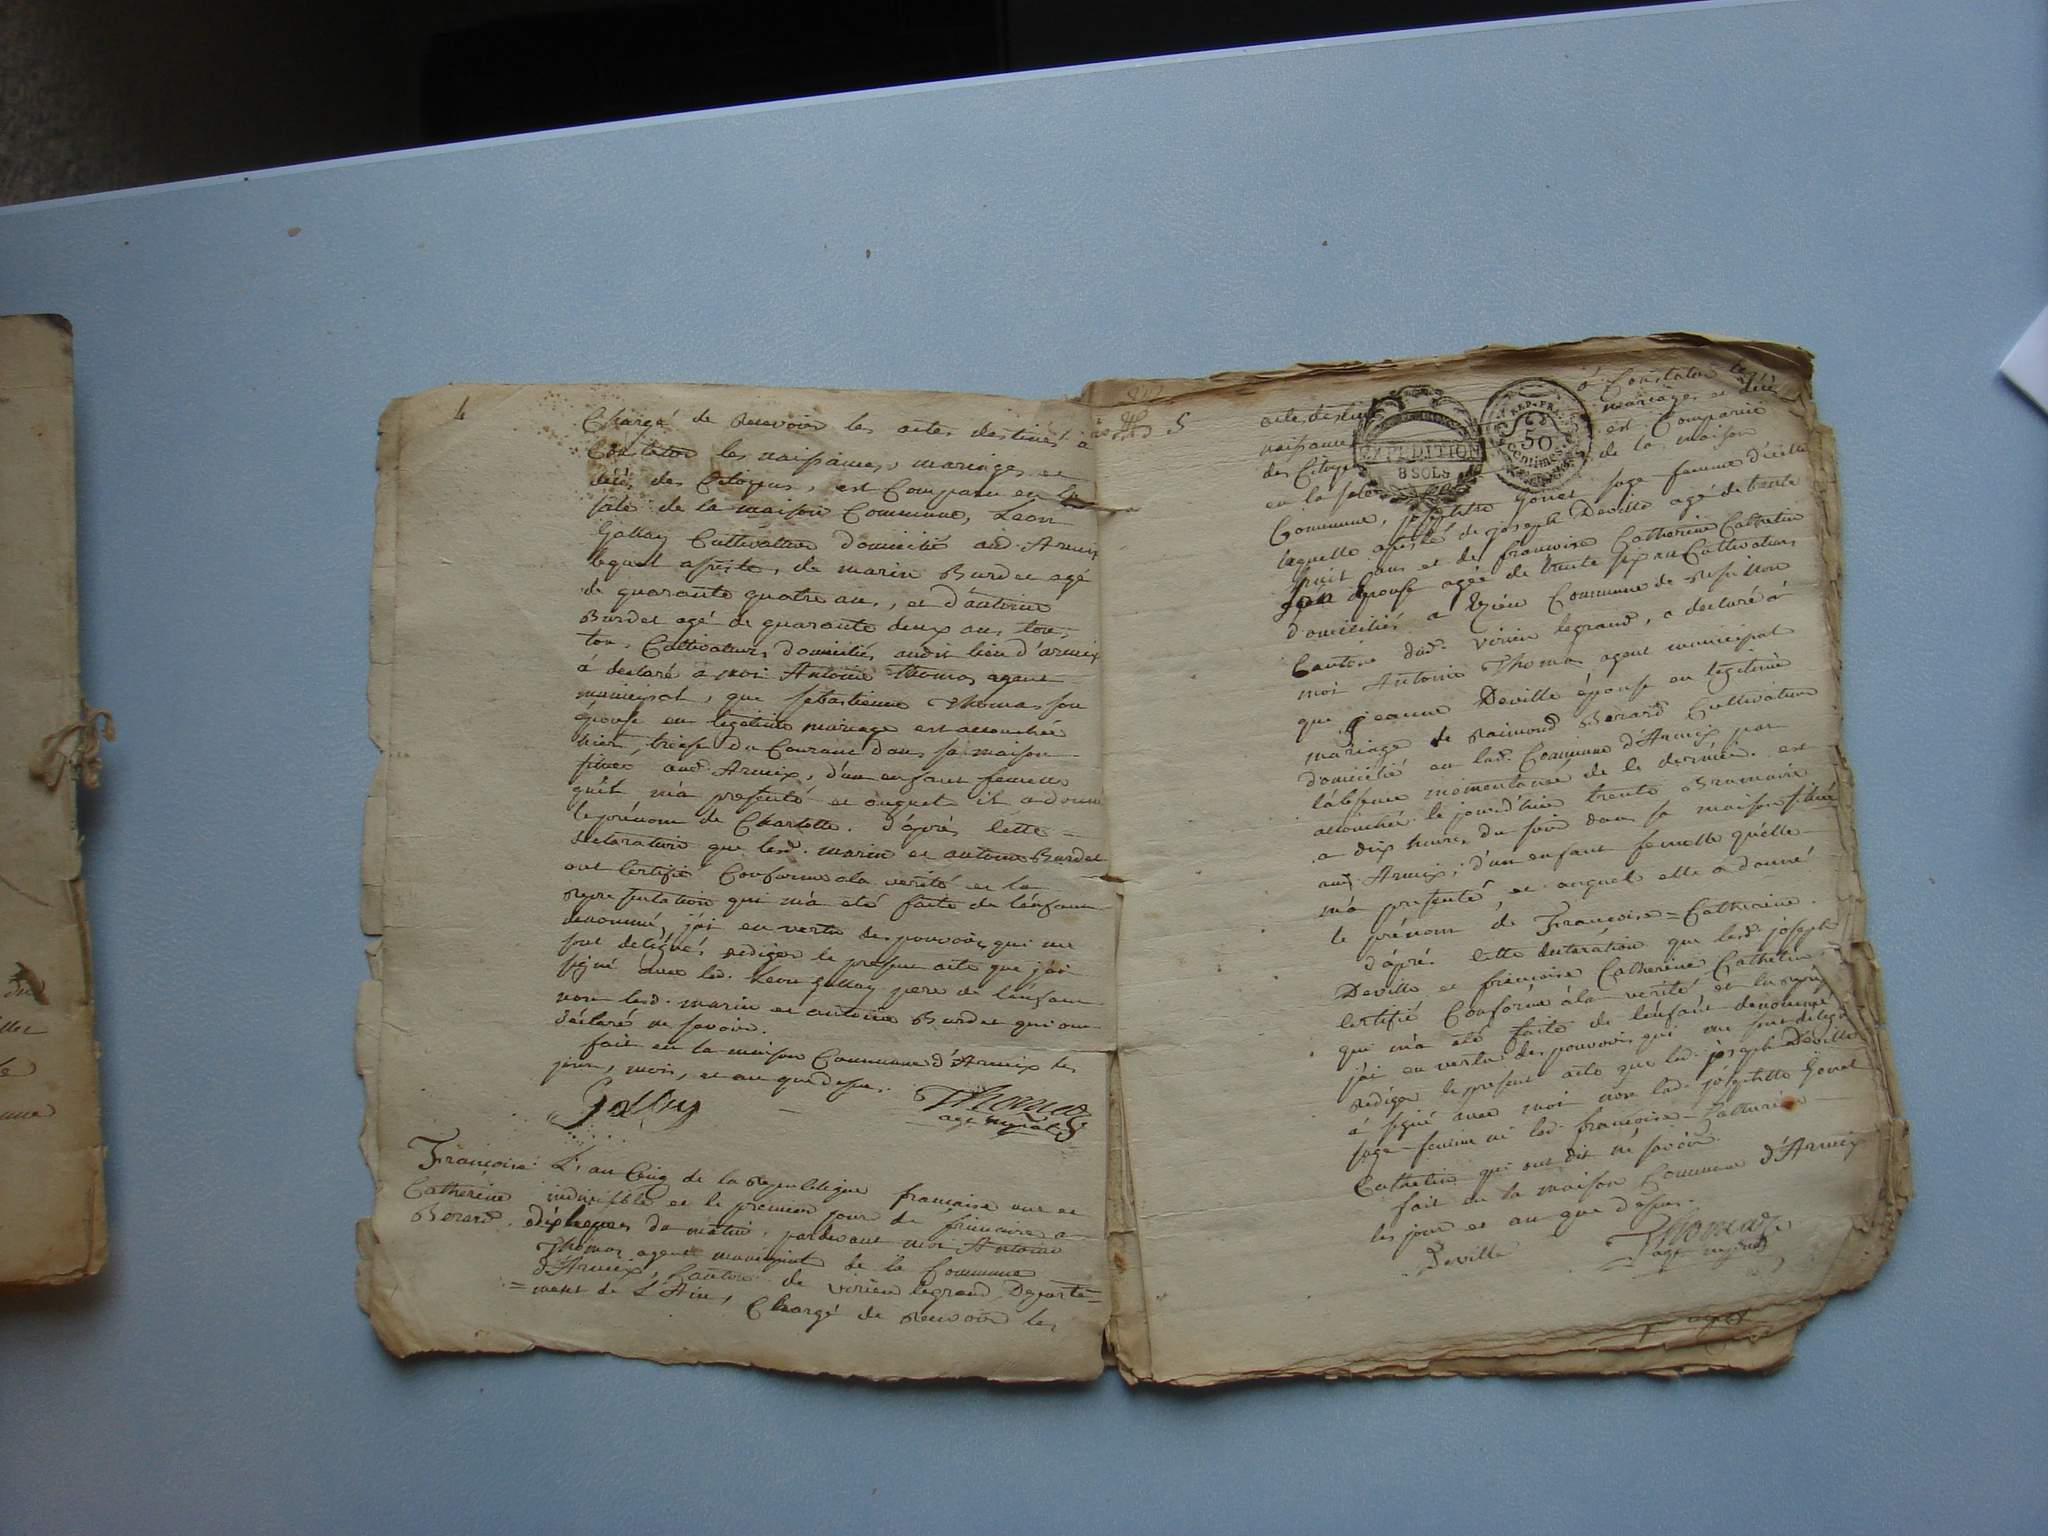 4
Chargé de Recevoir les actes destinés à
Constater les naissances, mariages et
décès des Citoyens, est Comparu en la
sale de la maison Commune, Leon
Gallay Cultivateur domicilié aud. Armix
lequel assisté, de marin Burdet agé
de quarante quatre ans, et d'antoine
Burdet agé de quarante deux ans, tous
Cultivateurs domiciliés audit lieu d'armix
à declaré à moi Antoine Thomas agent
municipal, que sebastienne Thomas son
épouse en legitime mariage est accouchée
hier, treize du Courant dans sa maison
située aud. Armix, d'un enfant femelle
qu'il m'a presenté et auquel il a donné
le prénom de Charlotte. d'après cette
declaration que lesd. marin et antoine Burdet
ont certifié Conforme à la verité et la
representation qui m'a eté faite de l'enfant
denommé, j'ai en vertu des pouvoirs qui me
sont delégués, rediger le present acte que j'ai
signé avec led. Leon Gallay pere de l'enfant
non lesd. marin et antoine Burdet qui ont
déclaré ne savoir.
fait en la maison Commune d'Armix les
jour, mois, et an que dessus.
Gallay Thomas
agt mpal
Françoise
Catherine
Berard.
L'an Cinq de la Republique française une et
indivisible et le premier jour de frimaire a
du matin, pardevant moi Antoine
Thomas agent municipal de la Commune
d'Armix, Canton de virieu legrand, Departe=
=ment de L'Ain, Chargé de Recevoir les
5
actes destinés à Constater les
naissances mariages et décès
des Citoyens est Comparue
en la sale de la maison
EXPEDITION
8 SOLS
REP. FR.
50
Centimes
Commune, Goinet sage femme d'icelle
laquelle assisté de joseph Deville agé de trente
huit ans et de françoise Catherine Cathelin
son épouse agée de trente six ans Cultivateurs
domiciliés a Commune de Rossillon
Canton dud. virieu legrand, a declaré à
moi Antoine Thomas agent municipal
que jeanne Deville épouse en legitime
mariage de Raimond Berard Cultivateur
domicilié en lad. Commune d'Armix par
l'absence momentanée de le dernier. est
accouchée le jourd'hier trente Brumaire
a dix heures du soir dans sa maison située
aud. Armix, d'un enfant femelle qu'elle
m'a presenté, et auquel elle à donné
le prénom de Françoise=Catherine.
d'après cette declaration que lesd. joseph
Deville et françoise Catherine Cathelin
certifié Conforme à la verité et la
qui m'a eté faite de l'enfant denommé
j'ai en vertu des pouvoirs qui me sont délegués
rédiger le present acte que led. joseph Deville
à signé avec moi non lad. Goinet
sage-femme ni lad. françoise-Catherine
Cathelin qui ont dit ne savoir.
fait en la maison Commune d'Armix
les jour et an que dessus.
Deville Thomas
agt mpal